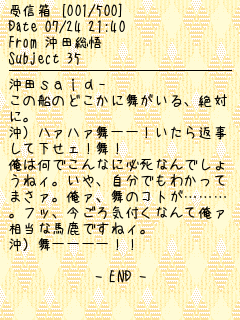 受信箱 [001/500]
Date 07/24 21:40
From 沖田総悟
Subject 35
沖田ｓａｉｄ-
この船のどこかに舞がいる、絶対
に。
沖）ハァハァ舞ーー！いたら返事
して下せェ！舞！
俺は何でこんなに必死なんでしょ
うねィ。いや、自分でもわかって
まさァ。俺ァ、舞のコトが………
。フッ、今ごろ気付くなんて俺ァ
相当な馬鹿ですねィ。
沖）舞ーーーー！！
- END -